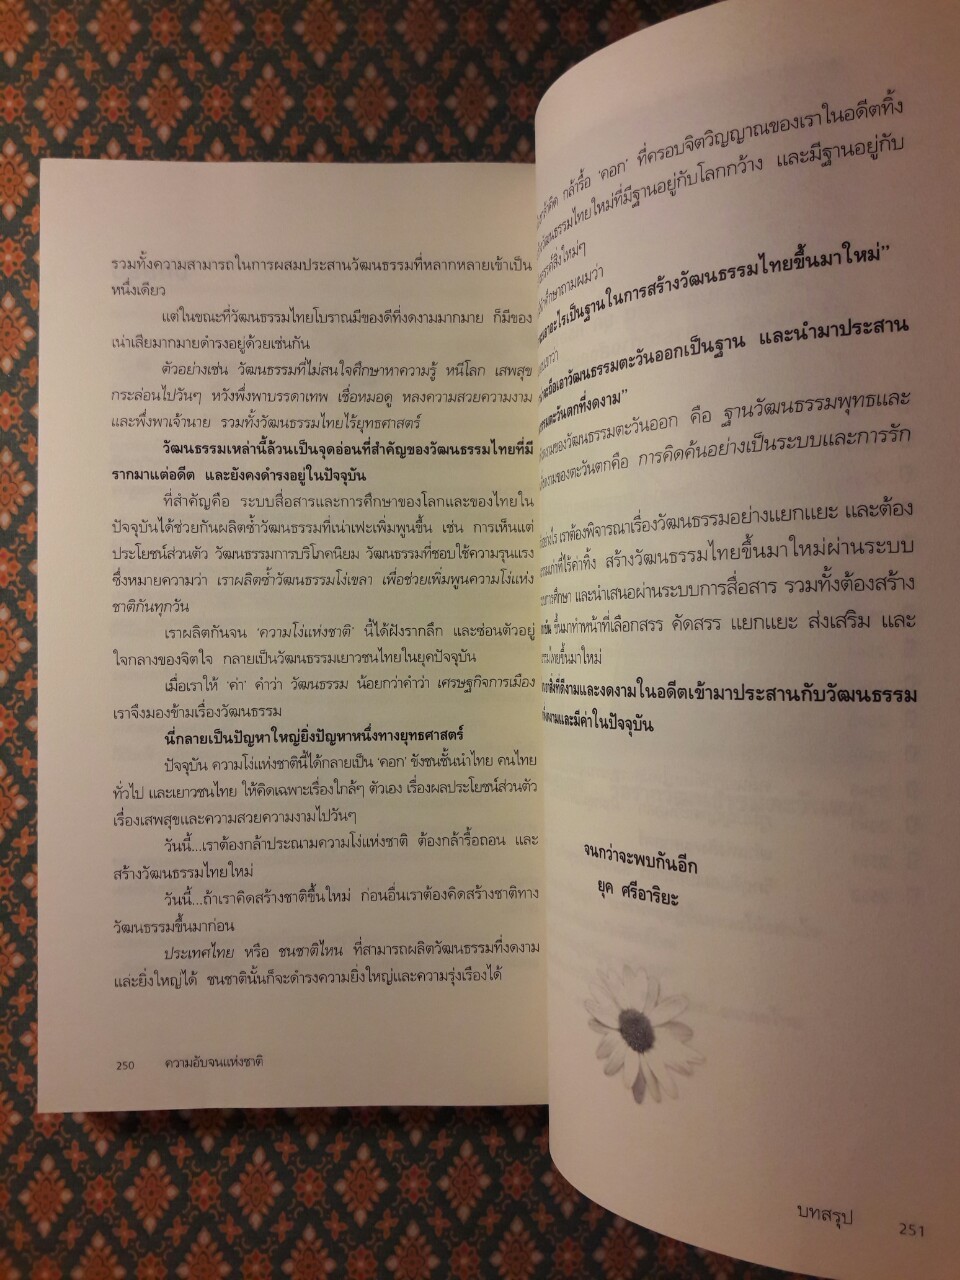 รวมทั้งความสามารถในการผสมประสานวัฒนธรรมที่หลากหลายเข้าเป็น
หนึ่งเดียว
แต่ในขณะที่วัฒนธรรมไทยโบราณมีของดีที่งดงามมากมาย ก็มีของ
เน่าเสียมากมายดำรงอยู่ด้วยเช่นกัน
ตัวอย่างเช่น วัฒนธรรมที่ไม่สนใจศึกษาหาความรู้ หนีโลก เสพสุข
กระล่อนไปวันๆ หวังพึ่งพาบรรดาเทพ เชื่อหมอดู หลงความสวยความงาม
และพึ่งพาเจ้านาย รวมทั้งวัฒนธรรมไทยไร้ยุทธศาสตร์
วัฒนธรรมเหล่านี้ล้วนเป็นจุดอ่อนที่สำคัญของวัฒนธรรมไทยที่มี
รากมาแต่อดีต และยังคงดำรงอยู่ในปัจจุบัน
ที่สำคัญคือ ระบบสื่อสารและการศึกษาของโลกและของไทยใน
ปัจจุบันได้ช่วยกันผลิตซ้ำวัฒนธรรมที่เน่าเฟะเพิ่มพูนขึ้น เช่น การเห็นแต่
ประโยชน์ส่วนตัว วัฒนธรรมการบริโภคนิยม วัฒนธรรมที่ชอบใช้ความรุนแรง
ซึ่งหมายความว่า เราผลิตซ้ำวัฒนธรรมโง่เขลา เพื่อช่วยเพิ่มพูนความโง่แห่ง
ชาติกันทุกวัน
เราผลิตกันจน ‘ความโง่แห่งชาติ’ นี้ได้ฝังรากลึก และซ่อนตัวอยู่
ใจกลางของจิตใจ กลายเป็นวัฒนธรรมเยาวชนไทยในยุคปัจจุบัน
เมื่อเราให้ ‘ค่า’ คำว่า วัฒนธรรม น้อยกว่าคำว่า เศรษฐกิจการเมือง
เราจึงมองข้ามเรื่องวัฒนธรรม
นี่กลายเป็นปัญหาใหญ่ยิ่งปัญหาหนึ่งทางยุทธศาสตร์
ปัจจุบัน ความโง่แห่งชาตินี้ได้กลายเป็น ‘คอก’ ขังชนชั้นนำไทย คนไทย
ทั่วไป และเยาวชนไทย ให้คิดเฉพาะเรื่องใกล้ๆ ตัวเอง เรื่องผลประโยชน์ส่วนตัว
เรื่องเสพสุขและความสวยความงามไปวันๆ
วันนี้...เราต้องกล้าประณามความโง่แห่งชาติ ต้องกล้ารื้อถอน และ
สร้างวัฒนธรรมไทยใหม่
วันนี้...ถ้าเราคิดสร้างชาติขึ้นใหม่ ก่อนอื่นเราต้องคิดสร้างชาติทาง
วัฒนธรรมขึ้นมาก่อน
ประเทศไทย หรือ ชนชาติไหน ที่สามารถผลิตวัฒนธรรมที่งดงาม
และยิ่งใหญ่ได้ ชนชาตินั้นก็จะดำรงความยิ่งใหญ่และความรุ่งเรืองได้
250 ความอับจนแห่งชาติ
กล้ารื้อ ‘คอก’ ที่ครอบจิตวิญญาณของเราในอดีตทิ้ง
วัฒนธรรมไทยใหม่ที่มีฐานอยู่กับโลกกว้าง และมีฐานอยู่กับ
สิ่งใหม่ๆ
ศึกษาถามผมว่า
อะไรเป็นฐานในการสร้างวัฒนธรรมไทยขึ้นมาใหม่”
ว่า
ถือเอาวัฒนธรรมตะวันออกเป็นฐาน และนำมาประสาน
ตะวันตกที่งดงาม”
ของวัฒนธรรมตะวันออก คือ ฐานวัฒนธรรมพุทธและ
งามของตะวันตกคือ การคิดค้นอย่างเป็นระบบและการรัก
เราต้องพิจารณาเรื่องวัฒนธรรมอย่างแยกแยะ และต้อง
เก่าที่ไร้ค่าทิ้ง สร้างวัฒนธรรมไทยขึ้นมาใหม่ผ่านระบบ
การศึกษา และนำเสนอผ่านระบบการสื่อสาร รวมทั้งต้องสร้าง
ขึ้นมาทำหน้าที่เลือกสรร คัดสรร แยกแยะ ส่งเสริม และ
ไทยขึ้นมาใหม่
ที่ดีงามและงดงามในอดีตเข้ามาประสานกับวัฒนธรรม
งดงามและมีค่าในปัจจุบัน
จนกว่าจะพบกันอีก
ยุค ศรีอาริยะ
บทสรุป 251